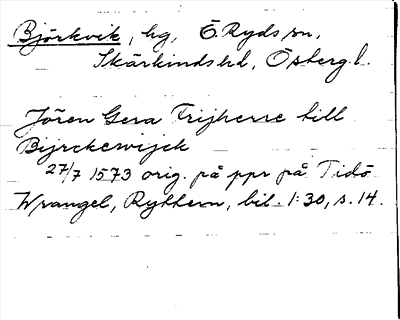 Björkvik, hg, Ö. Ryds sn,
Skärkinds hd, Österg. l.
Jören Gera Frijherre till
Bijrckewijck
27/7 1573 orig. på ppr på Tidö
Wrangel, Ryttern, bil. 1:30, s. 14.